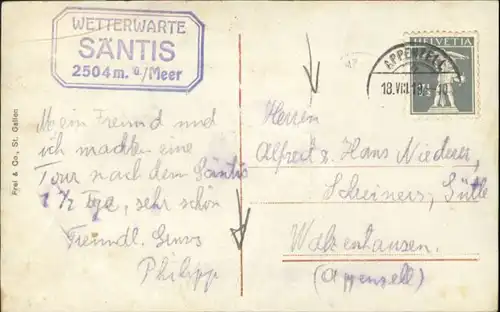 WETTERWARTE
SÄNTIS
2504 m. ü/Meer
Mein Freund und
ich machten eine
Tour nach dem Säntis
1 1/2 Tge, sehr schön
Freundl. Gruss
Philipp
Frei & Co., St. Gallen
HELVETIA
APPENZELL
18.VIII.19
Herren
Alfred & Hans Niederer,
Schreiners,
Walzenhausen.
(Appenzell)